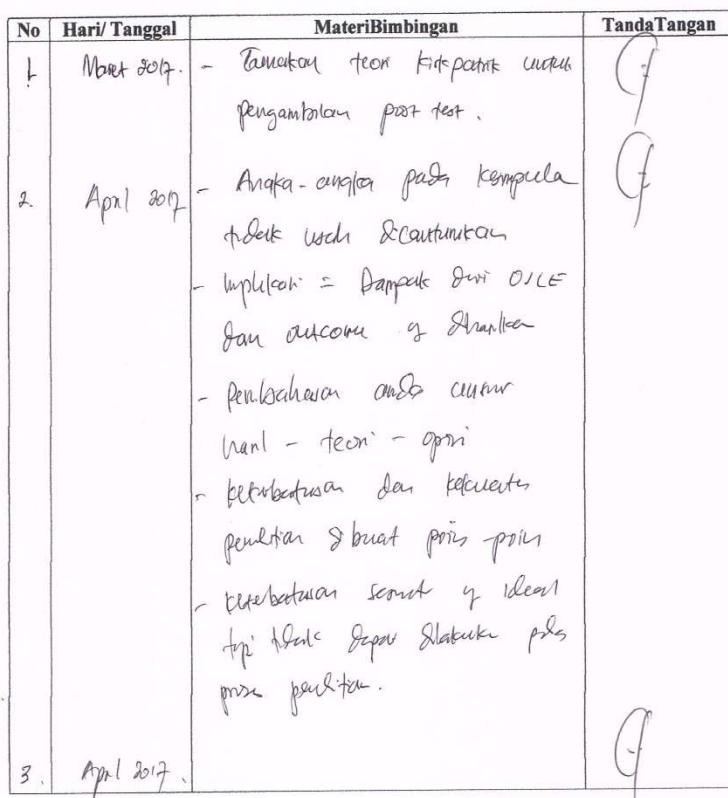 No Hari/ Tanggal MateriBimbingan TandaTangan
1. Maret 2017. - Tamakan teori Kirkpatrik untuk
pengambilan post test.
2. April 2017 - Angka-angka pada kesmpula
tidak usah dicantumkan
- Implikasi = Dampak dari OSCE
dan outcome yg diharapkan
- Pembahasan anda unsur
hasil - teori - opini
- keterbatasan dan kekuatan
penelitian dibuat poin-poin
- keterbatasan sesuat yg ideal
tapi tidak dapat dilakuka pada
proses penelitian.
3. April 2017.